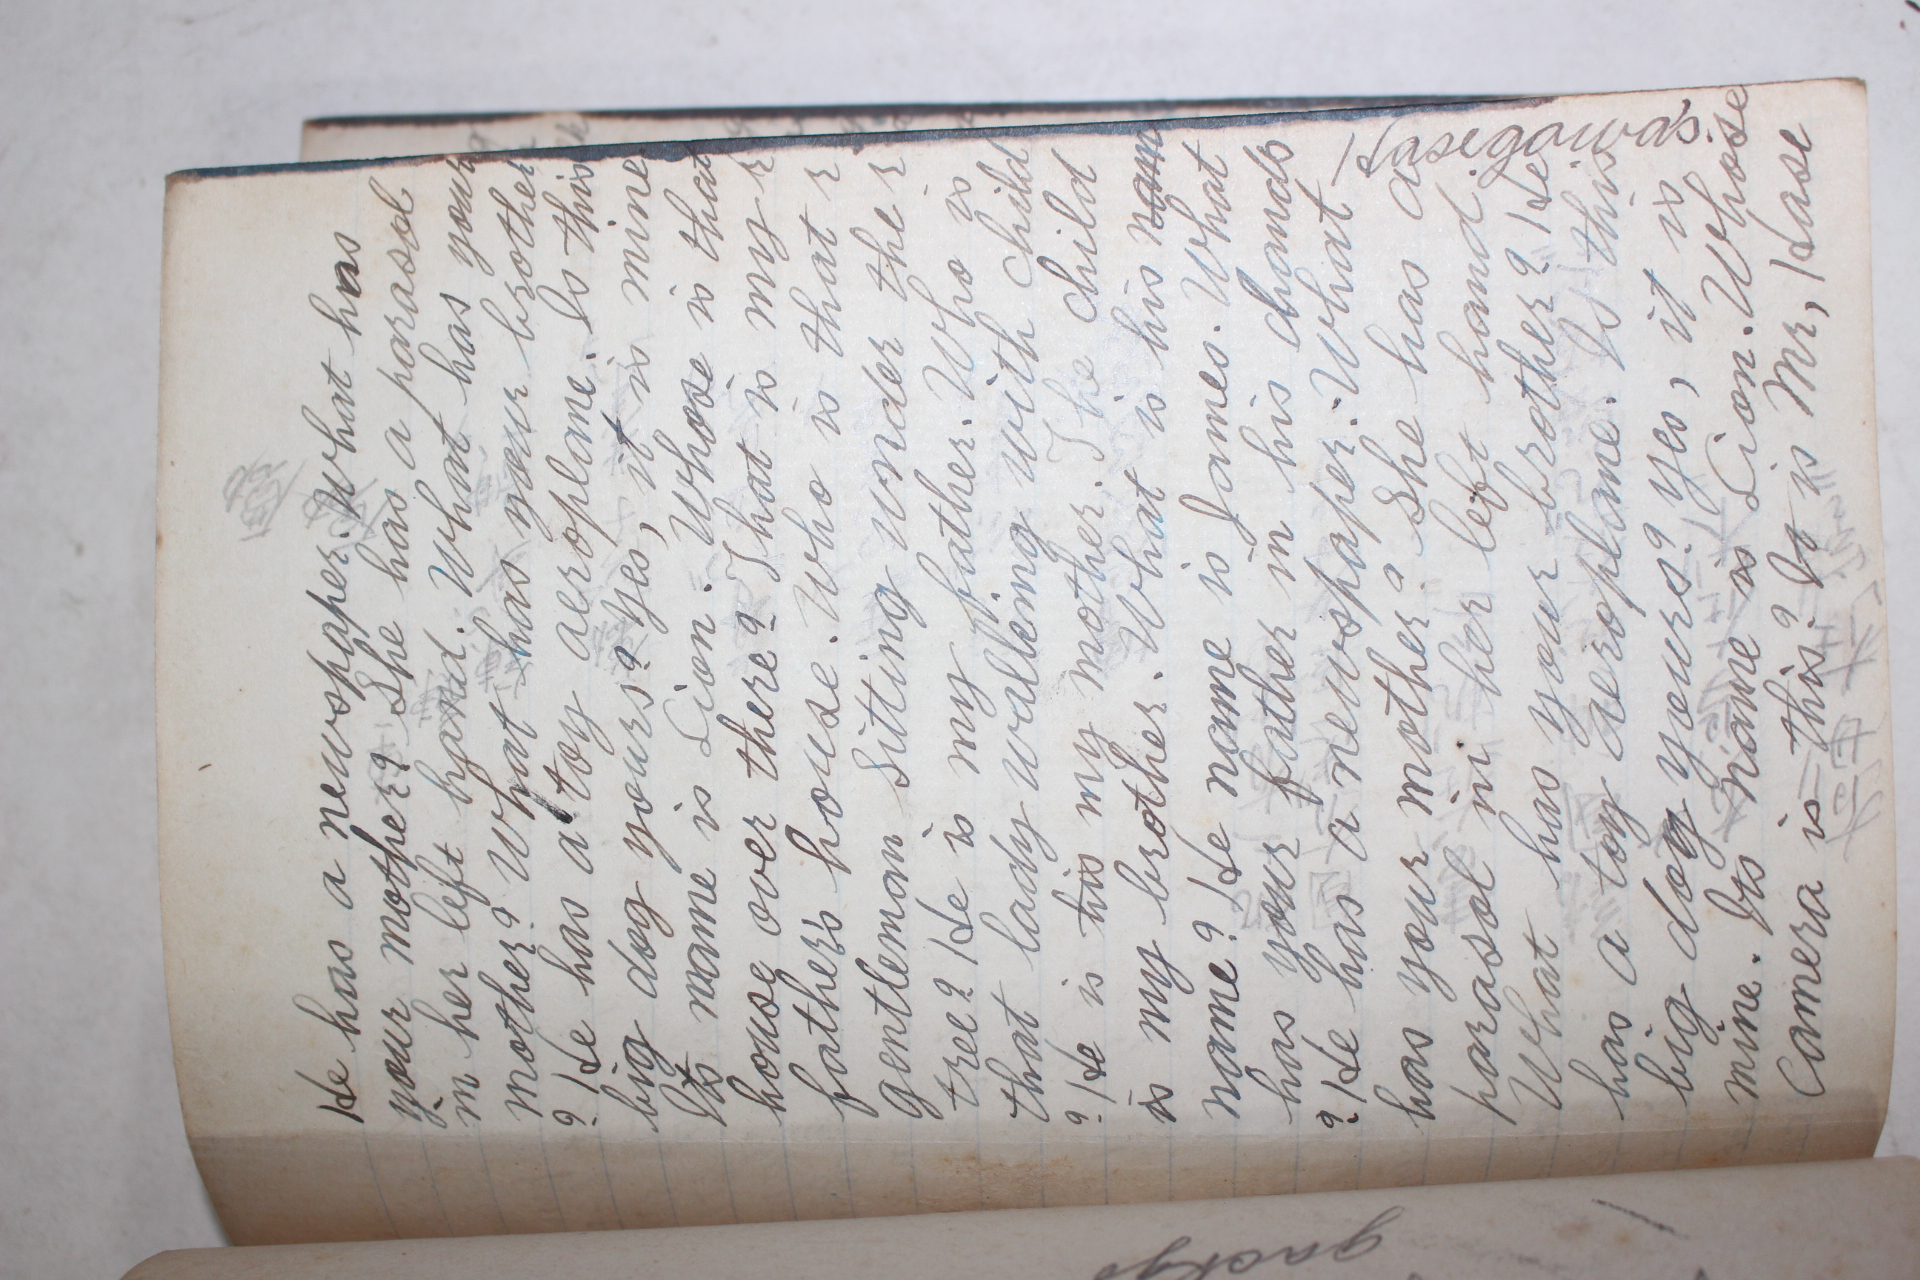 He has a newspaper. What has
your mother? She has a parasol
in her left hand. What has your
mother? What has your brother
? He has a toy aeroplane. Is this
big dog yours? Yes, it is mine
Its name is Lion. Whose is that
house over there? That is my
father's house. Who is that
gentleman sitting under the
tree? He is my father. Who is
that lady walking with child
? He is his my mother. The child
is my brother. What is his nam
name? He name is James. What
has your father in his hands
? He has a newspaper. What
has your mother? She has a
parasol in her left hand
What has your brother? He
has a toy aeroplane. Is this
big dog yours? Yes, it is
mine. Its name is Lion. Whose
Camera is this? It is Mr, Hase